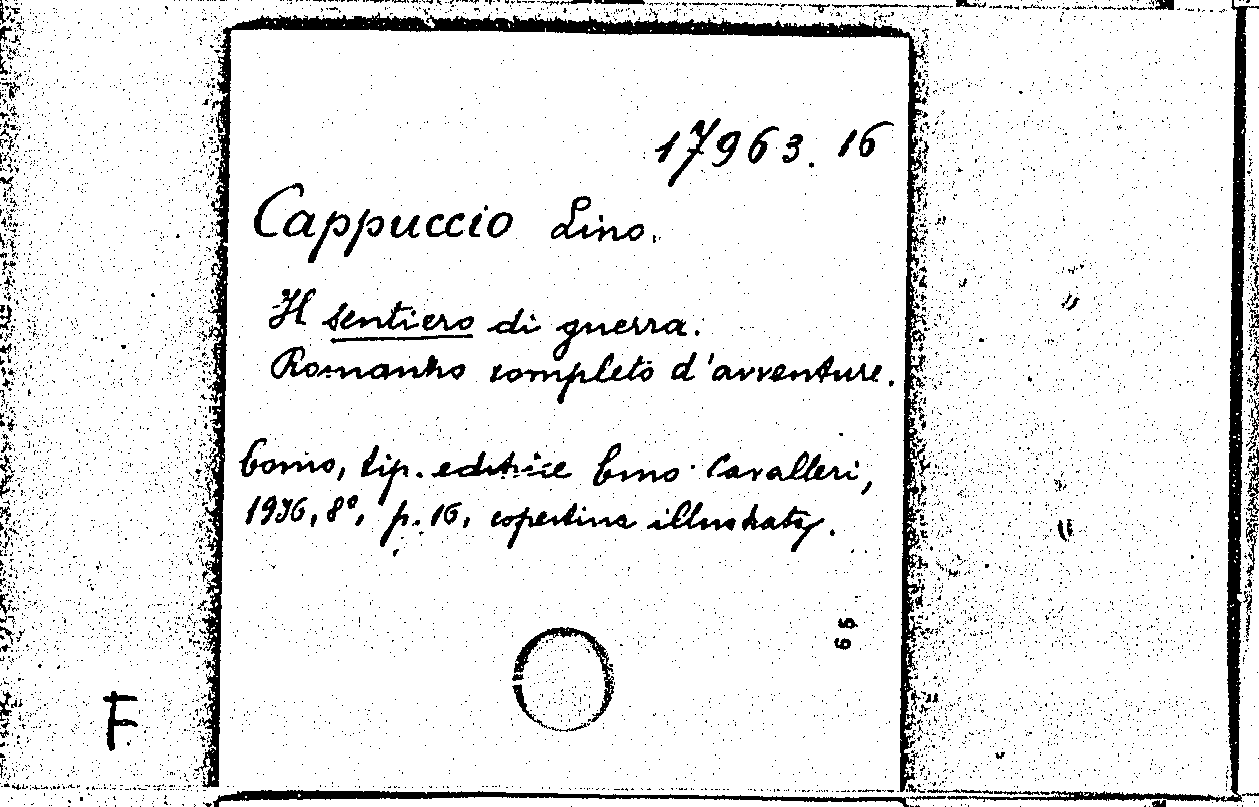 17963.16
Cappuccio Lino.
Il sentiero di guerra.
Romanzo completo d'avventure.
Como, tip. editrice Emo Cavalleri,
1936, 8°, p. 16, copertina illustrata.
65
F